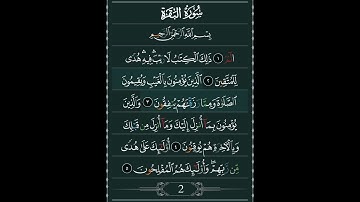 سُورَةُ البَقَرَةِ
بِسْمِ اللَّهِ الرَّحْمَٰنِ الرَّحِيمِ
الٓمٓ ١ ذَٰلِكَ ٱلْكِتَٰبُ لَا رَيْبَ ۛ فِيهِ ۛ هُدًى
لِّلْمُتَّقِينَ ٢ ٱلَّذِينَ يُؤْمِنُونَ بِٱلْغَيْبِ وَيُقِيمُونَ
ٱلصَّلَوٰةَ وَمِمَّا رَزَقْنَٰهُمْ يُنفِقُونَ ٣ وَٱلَّذِينَ
يُؤْمِنُونَ بِمَآ أُنزِلَ إِلَيْكَ وَمَآ أُنزِلَ مِن قَبْلِكَ
وَبِٱلْءَاخِرَةِ هُمْ يُوقِنُونَ ٤ أُو۟لَٰٓئِكَ عَلَىٰ هُدًى
مِّن رَّبِّهِمْ ۖ وَأُو۟لَٰٓئِكَ هُمُ ٱلْمُفْلِحُونَ ٥
2